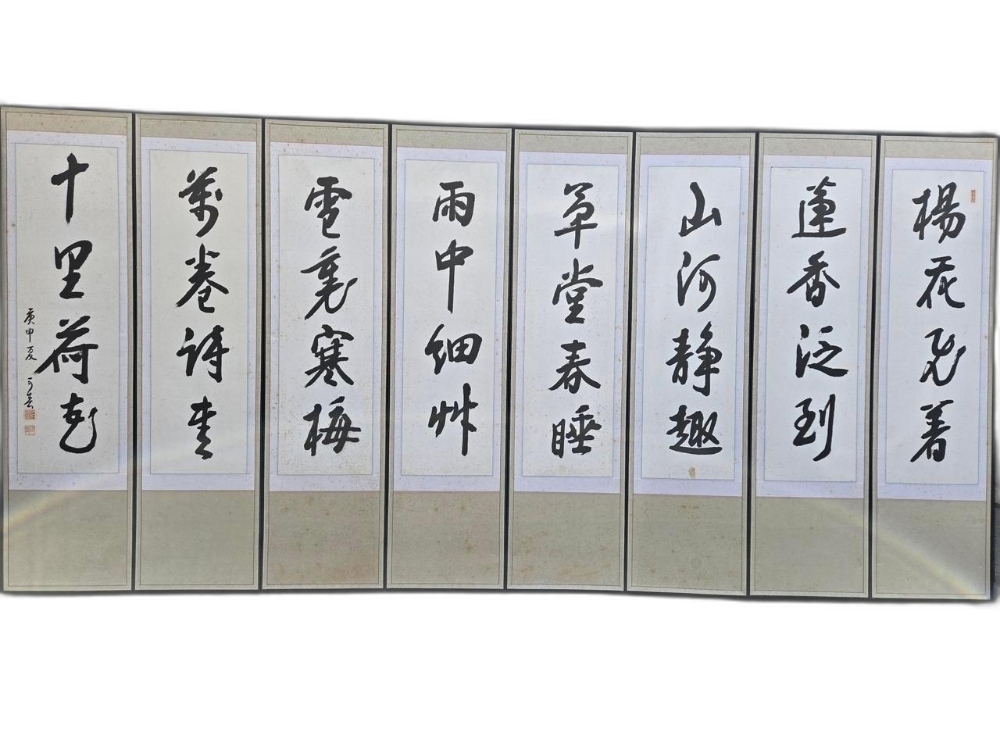 楊花飛着
蓮香泛到
山河静趣
草堂春睡
雨中細艸
雪裏寒梅
萬卷詩書
十里荷花
庚申夏